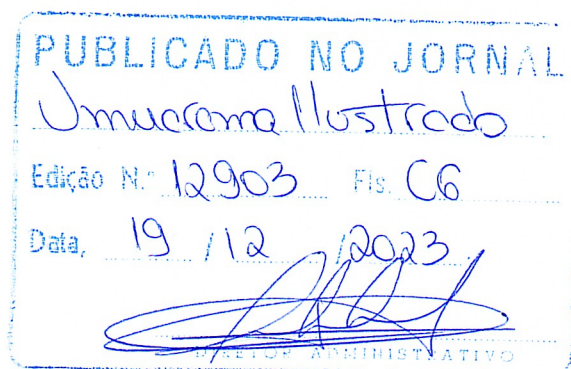 PUBLICADO NO JORNAL
Umuarama Ilustrado
Edição N.º 12903 Fls. C6
Data, 19 / 12 / 2023
DIRETOR ADMINISTRATIVO